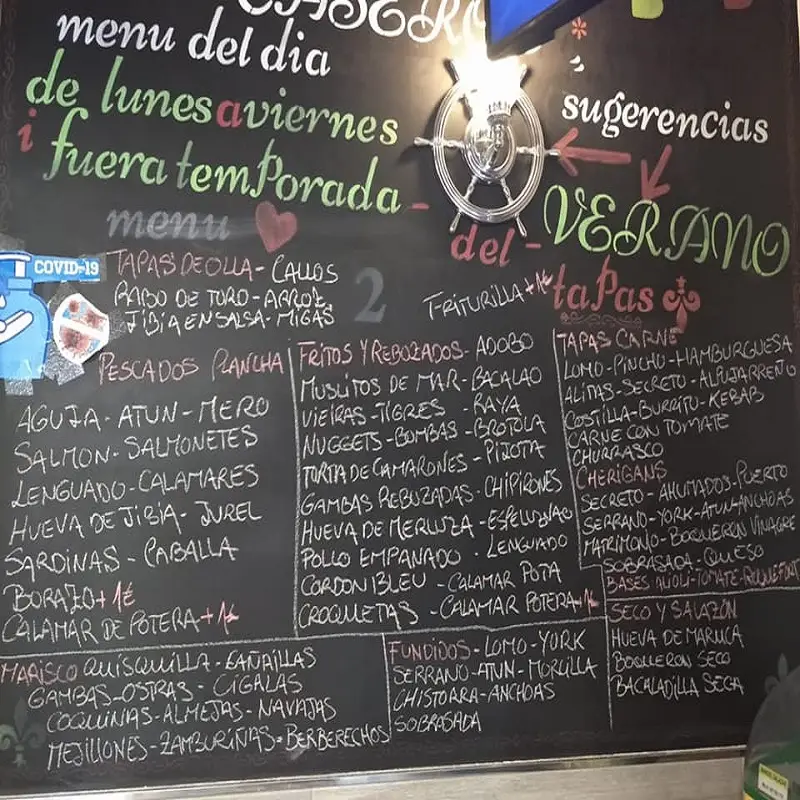 CASERO
menu del dia
de lunes a viernes
i fuera temporada -
menu
sugerencias
del - VERANO
tapas
COVID-19
TAPAS DE OLLA - CALLOS
RABO DE TORO - ARROZ
JIBIA EN SALSA - MIGAS
2
FRITURILLA +1€
PESCADOS PLANCHA
AGUJA - ATUN - MERO
SALMON - SALMONETES
LENGUADO - CALAMARES
HUEVA DE JIBIA - JUREL
SARDINAS - CABALLA
BORAZO +1€
CALAMAR DE POTERA +1€
FRITOS Y REBOZADOS - ADOBO
MUSLITOS DE MAR - BACALAO
VIEIRAS - TIGRES - RAYA
NUGGETS - BOMBAS - BROTOLA
TORTA DE CAMARONES - PIJOTA
GAMBAS REBOZADAS - CHIPIRONES
HUEVA DE MERLUZA - ESPELUZNAO
POLLO EMPANADO - LENGUADO
CORDON BLEU - CALAMAR POTA
CROQUETAS - CALAMAR POTERA +1€
TAPAS CARNE
LOMO - PINCHO - HAMBURGUESA
ALITAS - SECRETO - ALPUJARREÑO
COSTILLA - BURRITO - KEBAB
CARNE CON TOMATE
CHURRASCO
CHERIGANS
SECRETO - AHUMADOS - PUERTO
SERRANO - YORK - ATUN - ANCHOAS
MATRIMONIO - BOQUERON VINAGRE
SOBRASADA - QUESO
BASES ALIOLI - TOMATE - ROQUEFORT
MARISCO QUISQUILLA - CAÑAILLAS
GAMBAS - OSTRAS - CIGALAS
COQUINAS - ALMEJAS - NAVAJAS
MEJILLONES - ZAMBURIÑAS - BERBERECHOS
FUNDIDOS - LOMO - YORK
SERRANO - ATUN - MORCILLA
CHISTORRA - ANCHOAS
SOBRASADA
SECO Y SALAZÓN
HUEVA DE MARUCA
BOQUERON SECO
BACALADILLA SECA